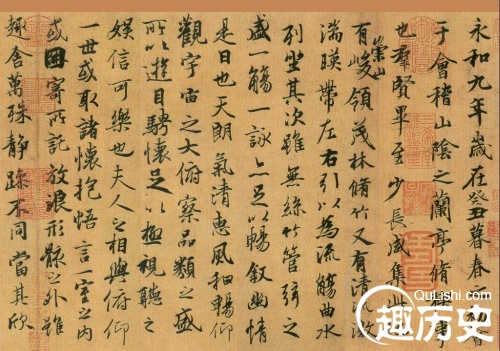 永和九年歲在癸丑暮春之初會
于會稽山陰之蘭亭脩禊事
也羣賢畢至少長咸集此
有崇山峻領茂林脩竹又有清流激
湍暎帶左右引以為流觴曲水
列坐其次雖無絲竹管弦之
盛一觴一詠亦足以暢叙幽情
是日也天朗氣清惠風和暢仰
觀宇宙之大俯察品類之盛
所以遊目騁懷足以極視聽之
娛信可樂也夫人之相與俯仰
一世或取諸懷抱悟言一室之內
或因寄所託放浪形骸之外雖
趣舍萬殊静躁不同當其欣
QuLiShi.com
趣历史